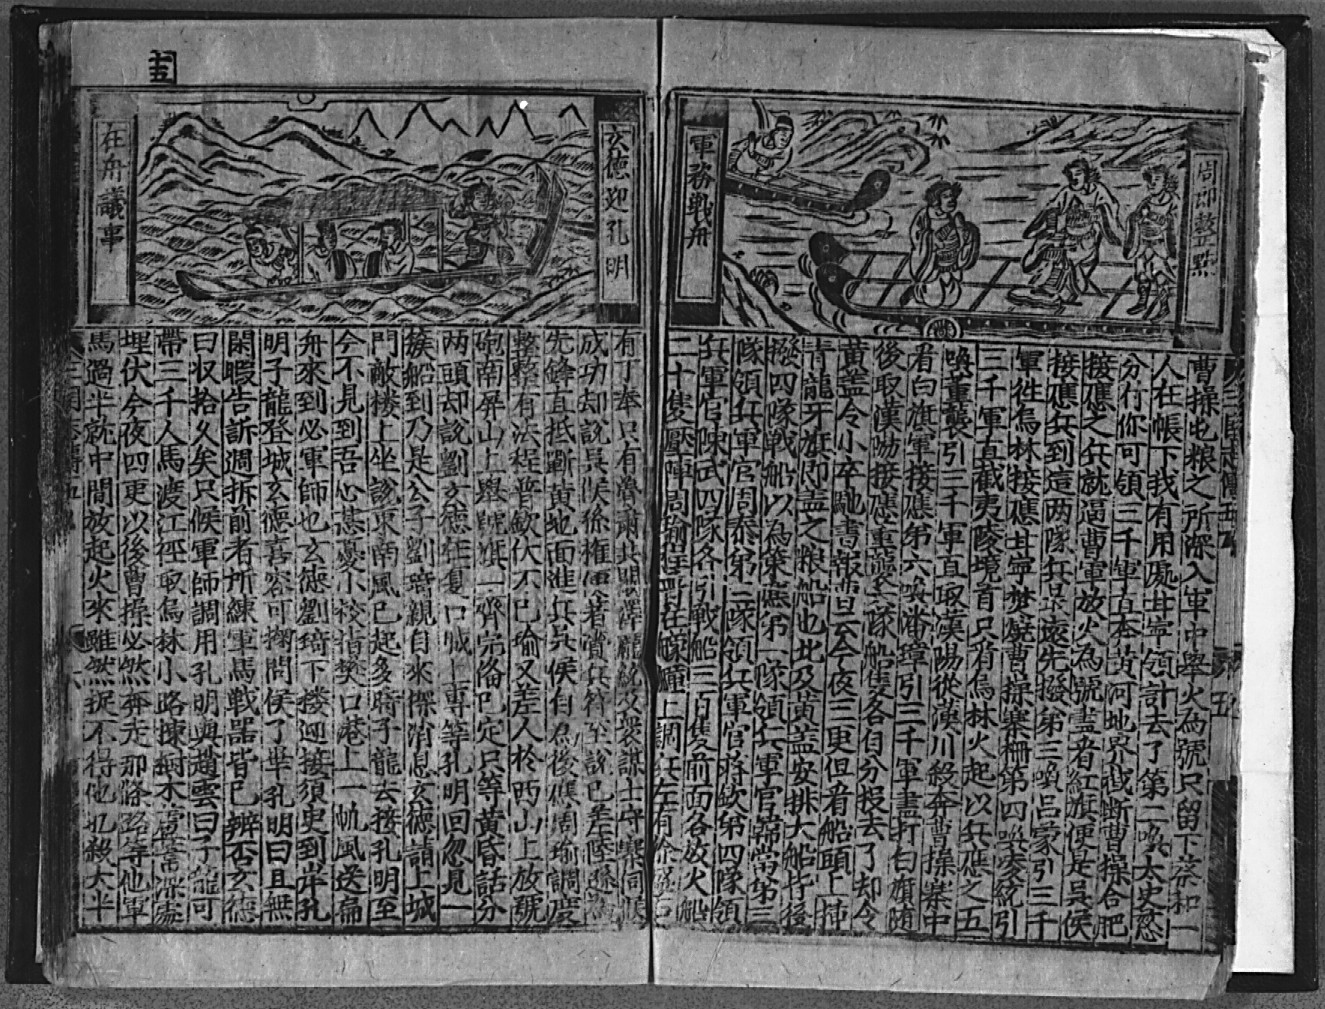 周郎整點
軍務戰舟
曹操屯粮之所深入軍中舉火為號只留下蔡和一
人在帳下我有用處甘寧領計去了第二喚太史慈
分付你可領三千軍直奔黃河地界截斷曹操合肥
接應之兵就逼曹軍放火為號盡看紅旗便是吳侯
接應兵到這两隊兵最遠先撥第三喚吕蒙引三千
軍徃烏林接應甘寧焚燒曹操寨柵第四喚凌統引
三千軍直截夷陵境首只看烏林火起以兵應之五
喚董襲引三千軍直取漢陽從漢川殺奔曹操寨中
看白旗軍接應第六喚潘璋引三千軍盡打白旗随
後取漢陽接應董襲六隊船隻各自分投去了却令
黃蓋令小卒馳書報曹只今夜三更但看船頭上揷
青龍牙旗即盖之粮船也比及黃蓋安排大船背後
撥四隊戰船以為第應第一隊領兵軍官韓當第二
隊領兵軍官周泰第三隊領兵軍官蔣欽第四隊領
兵軍官陳武四隊各引戰船三百隻前面各放火船
二十隻壓陣周瑜程普在艨艟上調兵左右徐盛右
三國志傳五
五
玄德迎孔明
在舟議事
有丁奉只有魯肅共闞澤龐統及衆謀士守寨伺候
成功却說吳侯孫權便著賫兵符至說已差陸遜為
先鋒直抵蘄黃地面進兵吳侯自為後應周瑜調度
整整有法程普欽伏不已瑜又差人於西山上放號
砲南屏山上舉號旗一齊完俻已定只等黃昏話分
两頭却說劉玄德在夏口城上專等孔明回忽見一
簇船到乃是公子劉琦親自來探消息玄德請上城
門敵楼上坐說東南風已起多時子龍去接孔明至
今不見到吾心甚憂小校指樊口港上一帆風送扁
舟來到必軍師也玄德劉琦下楼迎接須臾到岸孔
明子龍登城玄德喜容可掬問侯了畢孔明曰且無
閑暇告訴週折前者所練軍馬戰器皆已辨否玄德
曰収拾久矣只候軍師調用孔明與趙雲曰子龍可
帶三千人馬渡江徑取烏林小路揀樹木蘆葦深處
埋伏今夜四更以後曹操必然奔走那條路等他軍
馬過半就中間放起火來雖然捉不得他也殺大半
三國志傳五
六
十五